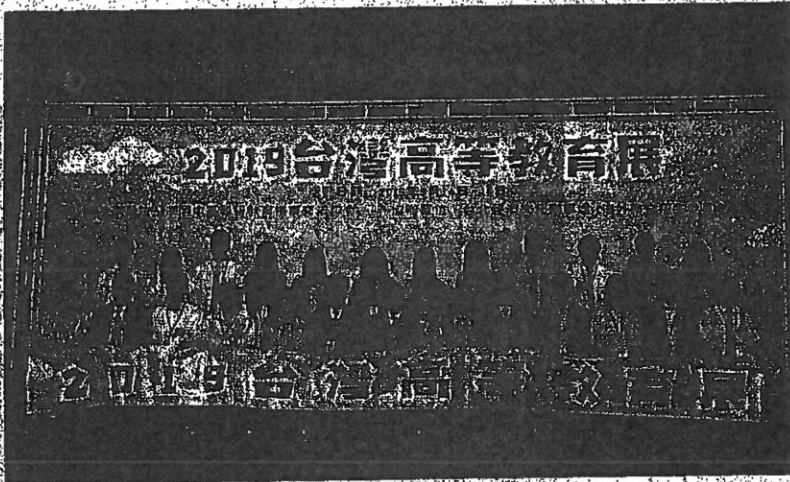 2019台灣高等教育展
2019台灣高等教育展